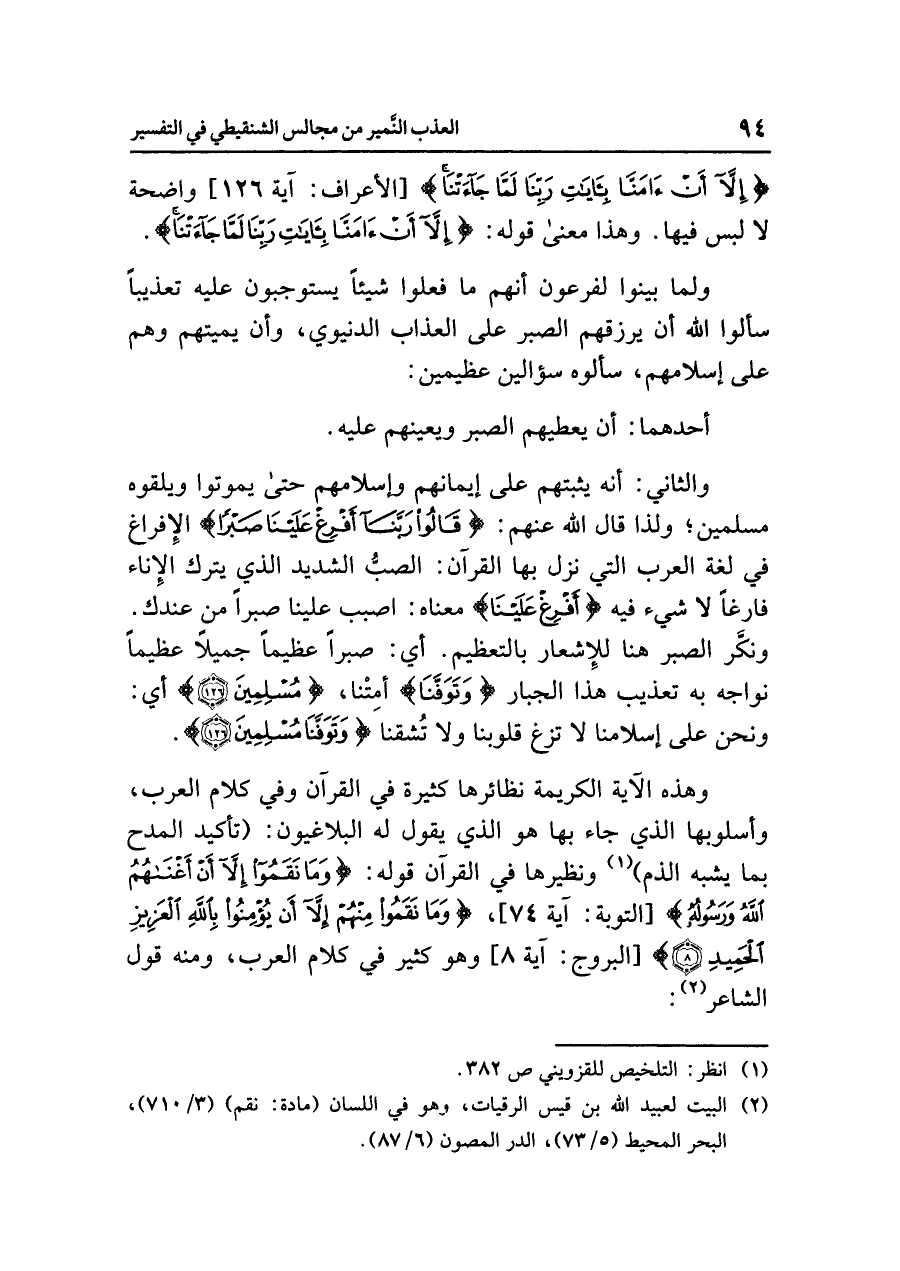 ٩٤ العذب النَّمير من مجالس الشنقيطي في التفسير
﴿ إِلَّآ أَنْ ءَامَنَّا بِـَٔايَٰتِ رَبِّنَا لَمَّا جَآءَتْنَاۚ﴾ [الأعراف: آية ١٢٦] واضحة
لا لبس فيها. وهذا معنىٰ قوله: ﴿ إِلَّآ أَنْ ءَامَنَّا بِـَٔايَٰتِ رَبِّنَا لَمَّا جَآءَتْنَاۚ﴾.
ولما بينوا لفرعون أنهم ما فعلوا شيئاً يستوجبون عليه تعذيباً
سألوا الله أن يرزقهم الصبر على العذاب الدنيوي، وأن يميتهم وهم
على إسلامهم، سألوه سؤالين عظيمين:
أحدهما: أن يعطيهم الصبر ويعينهم عليه.
والثاني: أنه يثبتهم على إيمانهم وإسلامهم حتىٰ يموتوا ويلقوه
مسلمين؛ ولذا قال الله عنهم: ﴿ قَالُوا۟ رَبَّنَآ أَفْرِغْ عَلَيْنَا صَبْرًا﴾ الإفراغ
في لغة العرب التي نزل بها القرآن: الصبُّ الشديد الذي يترك الإناء
فارغاً لا شيء فيه ﴿ أَفْرِغْ عَلَيْنَا﴾ معناه: اصبب علينا صبراً من عندك.
ونكَّر الصبر هنا للإشعار بالتعظيم. أي: صبراً عظيماً جميلاً عظيماً
نواجه به تعذيب هذا الجبار ﴿ وَتَوَفَّنَا﴾ أمِتْنا، ﴿ مُسْلِمِينَ ١٢٦﴾ أي:
ونحن على إسلامنا لا تزغ قلوبنا ولا تُشقنا ﴿ وَتَوَفَّنَا مُسْلِمِينَ ١٢٦﴾.
وهذه الآية الكريمة نظائرها كثيرة في القرآن وفي كلام العرب،
وأسلوبها الذي جاء بها هو الذي يقول له البلاغيون: (تأكيد المدح
بما يشبه الذم)(١) ونظيرها في القرآن قوله: ﴿ وَمَا نَقَمُوٓا۟ إِلَّآ أَنْ أَغْنَىٰهُمُ
ٱللَّهُ وَرَسُولُهُۥ﴾ [التوبة: آية ٧٤]، ﴿ وَمَا نَقَمُوا۟ مِنْهُمْ إِلَّآ أَن يُؤْمِنُوا۟ بِٱللَّهِ ٱلْعَزِيزِ
ٱلْحَمِيدِ ٨﴾ [البروج: آية ٨] وهو كثير في كلام العرب، ومنه قول
الشاعر(٢):
(١) انظر: التلخيص للقزويني ص ٣٨٢.
(٢) البيت لعبيد الله بن قيس الرقيات، وهو في اللسان (مادة: نقم) (٣/ ٧١٠)،
البحر المحيط (٥/ ٧٣)، الدر المصون (٦/ ٨٧).